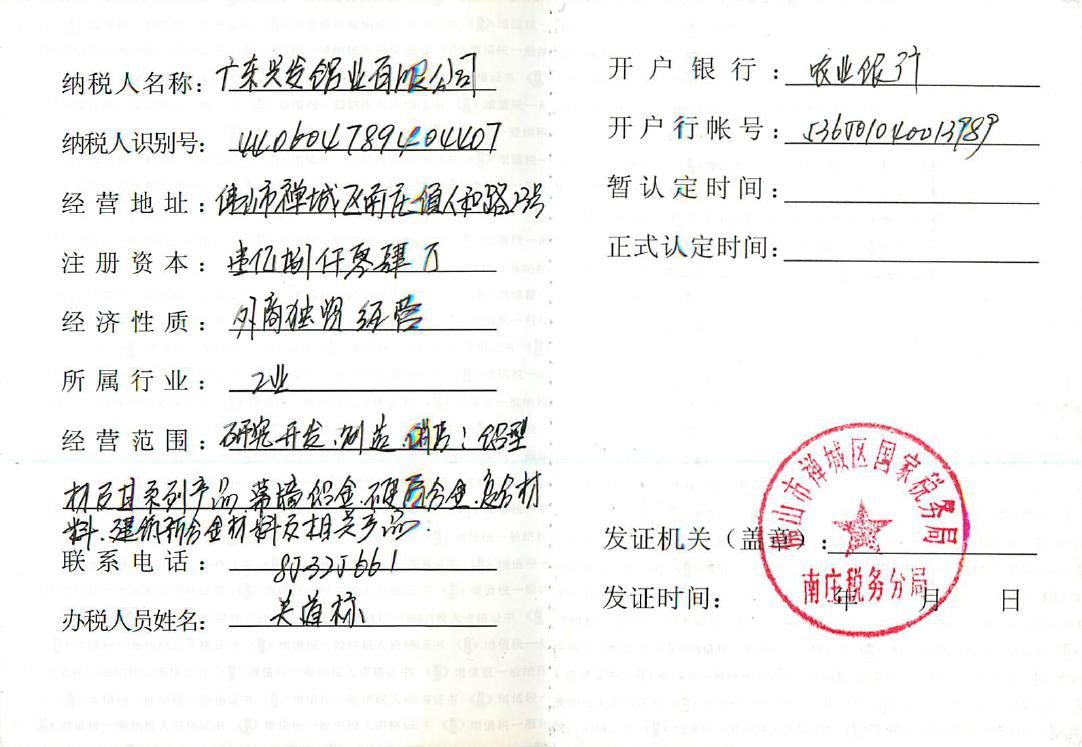 纳税人名称: 广东兴发铝业有限公司
纳税人识别号: 440604789404407
经营地址: 佛山市禅城区南庄镇人和路23号
注册资本: 壹亿捌仟零肆万
经济性质: 外商独资经营
所属行业: 工业
经营范围: 研究开发、制造、销售:铝型
材及其系列产品、幕墙铝合金、硬质合金、复合材
料、建筑新合金材料及相关产品.
联系电话: 85325661
办税人员姓名: 关道标
开户银行: 农业银行
开户行帐号: 536001040013989
暂认定时间:
正式认定时间:
佛山市禅城区国家税务局
南庄税务分局
发证机关(盖章):
发证时间: 年 月 日